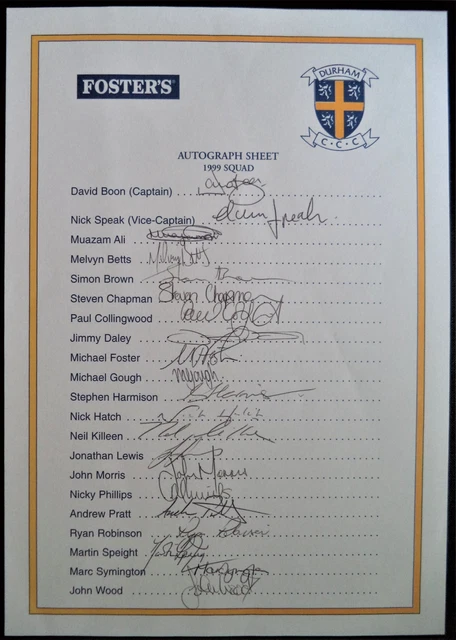 FOSTER'S
DURHAM
C·C·C
AUTOGRAPH SHEET
1999 SQUAD
David Boon (Captain)
Nick Speak (Vice-Captain)
Muazam Ali
Melvyn Betts
Simon Brown
Steven Chapman Steven Chapman
Paul Collingwood
Jimmy Daley
Michael Foster
Michael Gough MGough
Stephen Harmison
Nick Hatch Nick Hatch
Neil Killeen
Jonathan Lewis
John Morris John Morris
Nicky Phillips
Andrew Pratt
Ryan Robinson
Martin Speight
Marc Symington
John Wood John Wood